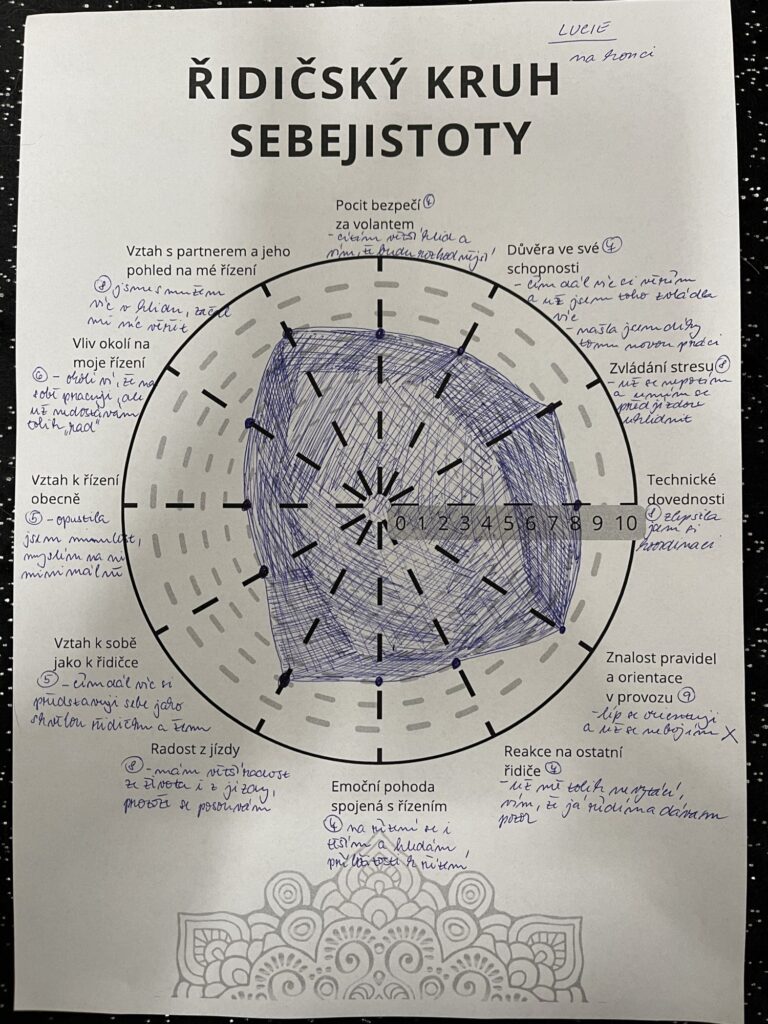 LUCIE
na konci
ŘIDIČSKÝ KRUH
SEBEJISTOTY
Pocit bezpečí
za volantem
- cítím větší klid a
vím, že budu
Vztah s partnerem a jeho
pohled na mé řízení
8 jsme s mužem
víc v klidu, začal
mi víc věřit
Důvěra ve své
schopnosti
- čím dál víc si věřím
a už jsem toho zvládla
víc
- našla jsem díky
tomu novou práci
Vliv okolí na
moje řízení
6 - okolí ví, že na
sobě pracuji, ale
už nedostávám
tolik „rad"
Zvládání stresu 8
- už se nepotím
a umím se
před jízdou
uklidnit
Vztah k řízení
obecně
5 - opustila
jsem minulost,
myslím na ni
minimálně
Technické
dovednosti
zlepšila
jsem si
koordinaci
0 1 2 3 4 5 6 7 8 9 10
Vztah k sobě
jako k řidičce
5 - čím dál víc si
představuji sebe jako
skvělou řidičku a ženu
Znalost pravidel
a orientace
v provozu 9
- líp se orientuji
a už se nebojím X
Radost z jízdy
8 - mám větší radost
ze života i z jízdy,
protože se posouvám
Reakce na ostatní
řidiče
- už mě tolik nevytáčí,
vím, že já řídím a dávám
pozor
Emoční pohoda
spojená s řízením
na řízení se i
těším a hledám
příležitosti k řízení